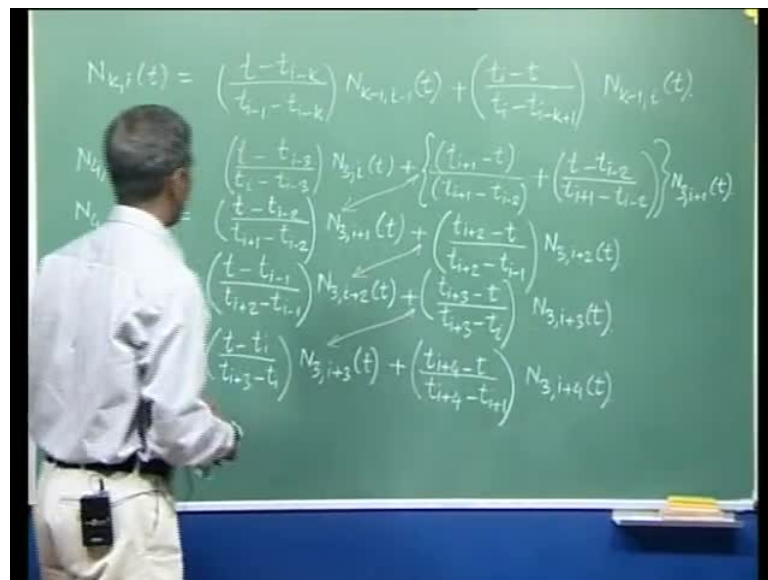 N_{k,i}(t) = ((t - t_{i-k}) / (t_{i-1} - t_{i-k})) N_{k-1,i-1}(t) + ((t_i - t) / (t_i - t_{i-k+1})) N_{k-1,i}(t).
N_{4, ((t - t_{i-3}) / (t_i - t_{i-3})) N_{3,i}(t) + {((t_{i+1} - t) / (t_{i+1} - t_{i-2})) + ((t - t_{i-2}) / (t_{i+1} - t_{i-2}))} N_{3,i+1}(t).
N_4 = ((t - t_{i-2}) / (t_{i+1} - t_{i-2})) N_{3,i+1}(t) + ((t_{i+2} - t) / (t_{i+2} - t_{i-1})) N_{3,i+2}(t)
((t - t_{i-1}) / (t_{i+2} - t_{i-1})) N_{3,i+2}(t) + ((t_{i+3} - t) / (t_{i+3} - t_i)) N_{3,i+3}(t).
((t - t_i) / (t_{i+3} - t_i)) N_{3,i+3}(t) + ((t_{i+4} - t) / (t_{i+4} - t_{i+1})) N_{3,i+4}(t)